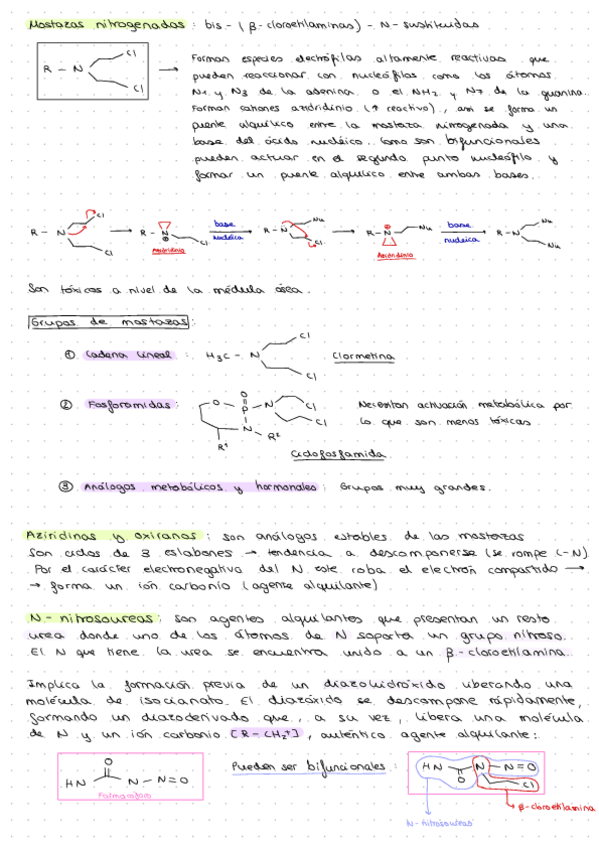 Mostazas nitrogenadas : bis - ( β - cloroetilaminas) - N - sustituidas
R - N
Cl
Cl
Forman especies electrófilas altamente reactivas que
pueden reaccionar con nucleófilos como los átomos
N1 y N3 de la adenina o el NH2 y N7 de la guanina.
Forman cationes aziridinio (↑ reactivo), así se forma un
puente alquílico entre la mostaza nitrogenada y una
base del ácido nucleico. Como son bifuncionales
pueden actuar en el segundo punto nucleófilo y
formar un puente alquílico entre ambas bases.
R - N Cl Cl → R - N ⊕ Cl base nucleica → R - N Nu Cl → R - N ⊕ Nu base nucleica → R - N Nu Nu
Aziridinio
Aziridinio
Son tóxicos a nivel de la médula ósea.
Grupos de mostazas :
① Cadena lineal : H3C - N Cl Cl Clormetina
② Fosforamidas : O P O N Cl Cl N R² R¹ Necesitan activación metabólica por
lo que son menos tóxicas
Ciclofosfamida
③ Análogos metabólicos y hormonales : Grupos muy grandes.
Aziridinas y oxiranos : son análogos estables de las mostazas
Son ciclos de 3 eslabones → tendencia a descomponerse (se rompe C-N)
Por el carácter electronegativo del N este roba el electrón compartido →
→ forma un ión carbonio (agente alquilante)
N - nitrosoureas : son agentes alquilantes que presentan un resto
urea donde uno de los átomos de N soporta un grupo nitroso.
El N que tiene la urea se encuentra unido a un β - cloroetilamina.
Implica la formación previa de un diazohidróxido liberando una
molécula de isocianato. El diazóxido se descompone rápidamente,
formando un diazoderivado que, a su vez, libera una molécula
de N y un ión carbonio [R-CH2+], auténtico agente alquilante :
HN O N - N = O
Farmacóforo
Pueden ser bifuncionales :
HN O N - N = O Cl
β - cloroetilamina
N - nitrosoureas